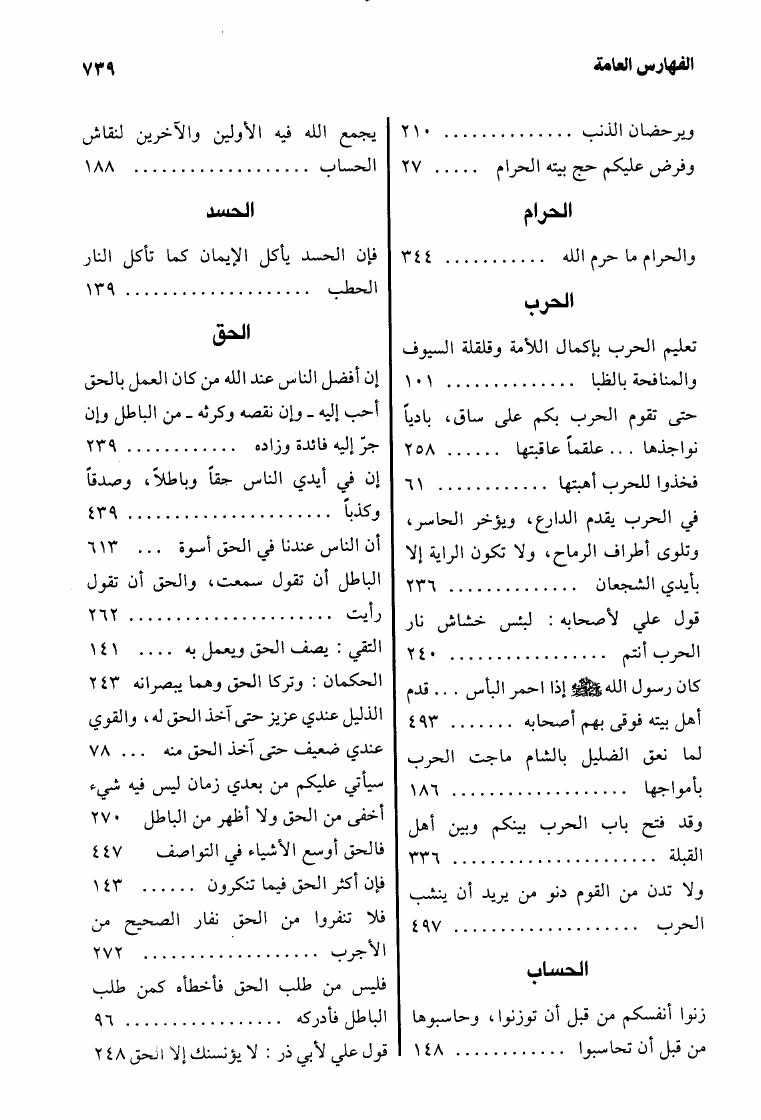 الفهارس العامة
٧٣٩
ويرحضان الذنب .............. ٢١٠
وفرض عليكم حج بيته الحرام ..... ٢٧
الحرام
والحرام ما حرم الله ........... ٣٤٤
الحرب
تعليم الحرب بإكمال اللأمة وقلقلة السيوف
والمنافحة بالظبا .............. ١٠١
حتى تقوم الحرب بكم على ساق، بادياً
نواجذها ... علقماً عاقبتها ...... ٢٥٨
فخذوا للحرب أهبتها ............ ٦١
في الحرب يقدم الدارع، ويؤخر الحاسر،
وتلوى أطراف الرماح، ولا تكون الراية إلا
بأيدي الشجعان .............. ٢٣٦
قول علي لأصحابه : لبئس خشاش نار
الحرب أنتم ................. ٢٤٠
كان رسول الله ﷺ إذا احمر البأس ... قدم
أهل بيته فوقى بهم أصحابه ....... ٤٩٣
لما نعق الضليل بالشام ماجت الحرب
بأمواجها ................... ١٨٦
وقد فتح باب الحرب بينكم وبين أهل
القبلة ...................... ٣٣٦
ولا تدن من القوم دنو من يريد أن ينشب
الحرب .................... ٤٩٧
الحساب
زنوا أنفسكم من قبل أن توزنوا، وحاسبوها
من قبل أن تحاسبوا ............ ١٤٨
يجمع الله فيه الأولين والآخرين لنقاش
الحساب ................... ١٨٨
الحسد
فإن الحسد يأكل الإيمان كما تأكل النار
الحطب .................... ١٣٩
الحق
إن أفضل الناس عند الله من كان العمل بالحق
أحب إليه ـ وإن نقصه وكرثه ـ من الباطل وإن
جرّ إليه فائدة وزاده ............ ٢٣٩
إن في أيدي الناس حقاً وباطلاً، وصدقاً
وكذباً ...................... ٤٣٩
أن الناس عندنا في الحق أسوة ... ٦١٣
الباطل أن تقول سمعت، والحق أن تقول
رأيت ...................... ٢٦٢
التقي : يصف الحق ويعمل به .... ١٤١
الحكمان : وتركا الحق وهما يبصرانه ٢٤٣
الذليل عندي عزيز حتى آخذ الحق له، والقوي
عندي ضعيف حتى آخذ الحق منه ... ٧٨
سيأتي عليكم من بعدي زمان ليس فيه شيء
أخفى من الحق ولا أظهر من الباطل ٢٧٠
فالحق أوسع الأشياء في التواصف ٤٤٧
فإن أكثر الحق فيما تنكرون ...... ١٤٣
فلا تنفروا من الحق نفار الصحيح من
الأجرب ................... ٢٧٢
فليس من طلب الحق فأخطأه كمن طلب
الباطل فأدركه ................. ٩٦
قول علي لأبي ذر : لا يؤنسنك إلا الحق ٢٤٨